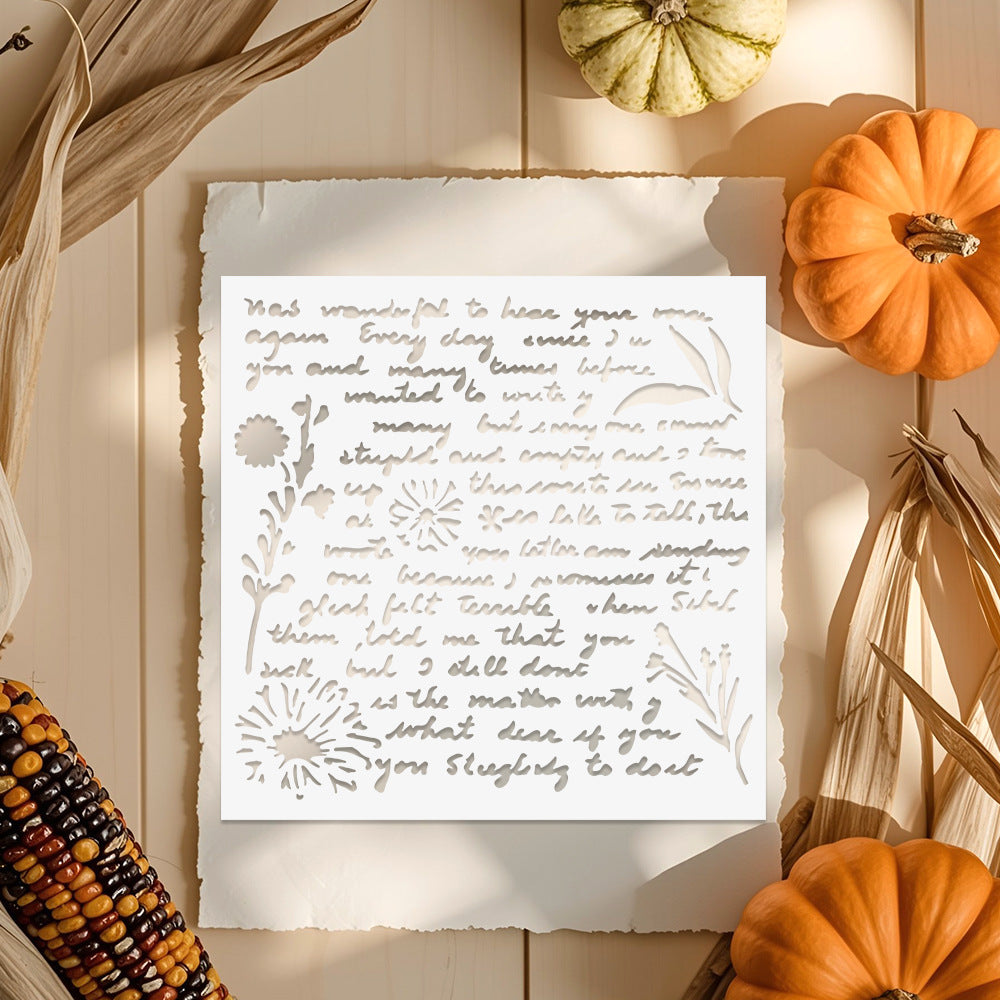 was wonderful to hear your voice
again Every day since I
you and many times before
wanted to write y
many but every one sound
stupid and empty and I tore
up this write in
at so like to tell, the
wrote you letter am sending
one because I promised it
felt Terrible when
them, told me that you
sick but I still dont
is the matter with y
what dear if you
you to do it